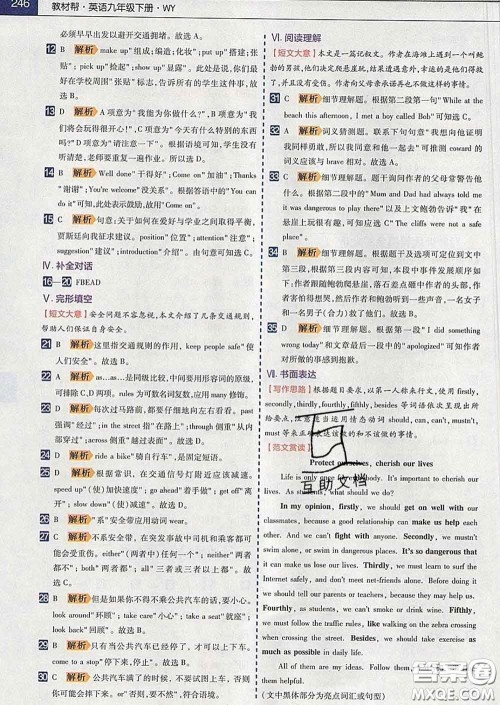 246 教材帮·英语九年级下册·WY
必须早早出发以避开交通拥堵。故选 A。
12 B 解析 make up“组成;编造;化妆”; put up“搭建;张
贴”; pick up“捡起”; show up“显露”。此处是说,你们最
好在学校周围“张贴”标志,告诉所有的学生这件事,故
选 B。
13 D 解析 A 项意为“我能为你做什么?”,B 项意为“我
们将会玩得很开心!”,C 项意为“今天有什么特别的东西
吗?”D 项意为“请注意一下”。根据语境可知,学生们没
有认真听讲,老师要重复一遍作业。所以选 D。
14 B 解析 Well done“干得好”; Come on“加油”; Thanks
“谢谢”; You're welcome“没关系”。根据答语中的“You can
do it”可知,此处表示鼓励,故用“Come on”。
15 C 解析 句意:关于如何在爱好与学业之间取得平衡,
贾斯廷向我征求建议。position“位置”; attention“注意”;
suggestion“建议”; introduction“介绍”。由句意可知选 C。
Ⅳ. 补全对话
16—20 FBEAD
Ⅴ. 完形填空
【短文大意】安全问题不容忽视,本文介绍了几条交通规则,
帮助人们保证自身安全。
21 B 解析 这里指交通规则的作用,keep people safe“使
人们安全”。故选 B。
22 A 解析 as...as...是同级比较,中间要用形容词的原级,
可排除 C,D 两项。rules 为可数名词复数,应用 many 修饰。
23 D 解析 每次过马路前,都要往两边仔细看有无车辆。
past“经过”; in the street“指在路上”; through 侧重“从内
部穿过”; across 侧重“越过表面”。故选 D。
24 C 解析 ride a bike“骑自行车”,是固定短语。
25 C 解析 根据常识,在交通信号灯附近应该减速。
speed up“(使)加快速度”; go ahead“着手做”; get off“离
开”; slow down“(使)减速”。故选 D。
26 B 解析 “系”安全带应用动词 wear。
27 C 解析 不系安全带,在突发事故中司机和乘客都可
能会受重伤。either“(两者中)任何一个”; neither“两者都
不”; both“两者都”; all“三者或三者以上都”。根据句意可知
选 C。
28 A 解析 但是如果你不得不乘公共汽车的话,要小心。
look around“环顾”; take care“小心”; take out“取出”;
look back“回顾”。故选 B。
29 D 解析 只有当公共汽车停下来后,才可以上下车。
come to a stop“停下来,停止”。故选 D。
30 A 解析 根据常识可知,在公共汽车上要坐好,不要来
回走动。move around“来回走动”,符合语境。
Ⅵ. 阅读理解
【短文大意】本文是一篇记叙文。作者在海滩上遇到了一些勇
敢的孩子,他们决定爬悬崖玩,结果遭遇意外,幸运的是他们得
到了救助。作者向父母亲承诺再也不做这样的事了。
31 C 解析 细节理解题。根据第二段第一句“While at the
beach this afternoon, I met a boy called Bob”可知选 C。
32 A 解析 词义猜测题。联系下句句意“我想向他证明
我同样勇敢,所以我同意和他一起去”可推测 coward 的
词义应该与 brave 相对。故选 A。
33 C 解析 细节理解题。题干询问作者的父母亲警告他
什么。根据第二段中的“Mum and Dad had always told
me it was dangerous to play there”以及上文鲍勃告诉“我”在
悬崖上玩很有趣,可知应选 C“The cliffs were not a safe
place”。
34 B 解析 细节理解题。根据题干及选项可定位到文中
第三段。根据第三段内容可知,本段中事件发展顺序应
为:作者跟随鲍勃爬悬崖,落石差点砸中作者的头部,作
者没有受伤,但作者和鲍勃听到一些声音,一名女子和
一名男子(合力)救了他们。故选 B。
35 D 解析 细节理解题。根据第一段的“I did something
wrong today”和文章最后一段中的“apologized”可知作者
对他所做的事情感到抱歉。
Ⅶ. 书面表达
【写作思路】根据题目要求,以第一人称来行文,使用 firstly,
secondly, thirdly, fourthly, fifthly, besides 等词语依次呈现出所
给要点,注意适当运用情态动词 should, can't, mustn't,
must 等来正确表达该做的和不该做的事情。
【范文赏读】
Protect ourselves, cherish our lives
Life is only once for everybody. It's important to cherish
our lives. As students, what should we do?
In my opinion, firstly, we should get on well with our
classmates, because a good relationship can make us help each
other. And we can't fight with anyone. Secondly, we mustn't
swim alone, or swim in dangerous places. It's so dangerous that
it can make us lose our lives. Thirdly, we must learn to surf the
Internet safely, and don't meet net-friends alone. Before doing
we should tell our parents or teachers, because they may help us.
Fourthly, as students, we can't smoke or drink wine. Fifthly,
we must follow the traffic rules, like walking on the zebra
crossing when crossing the street. Besides, we should exercise as
much as possible to stay healthy.
All of them are my ideas. I feel relaxed. Thank you for listening.
(文中黑体部分为亮点词汇或句型)
互助文档
答案圈
MXQE.COM